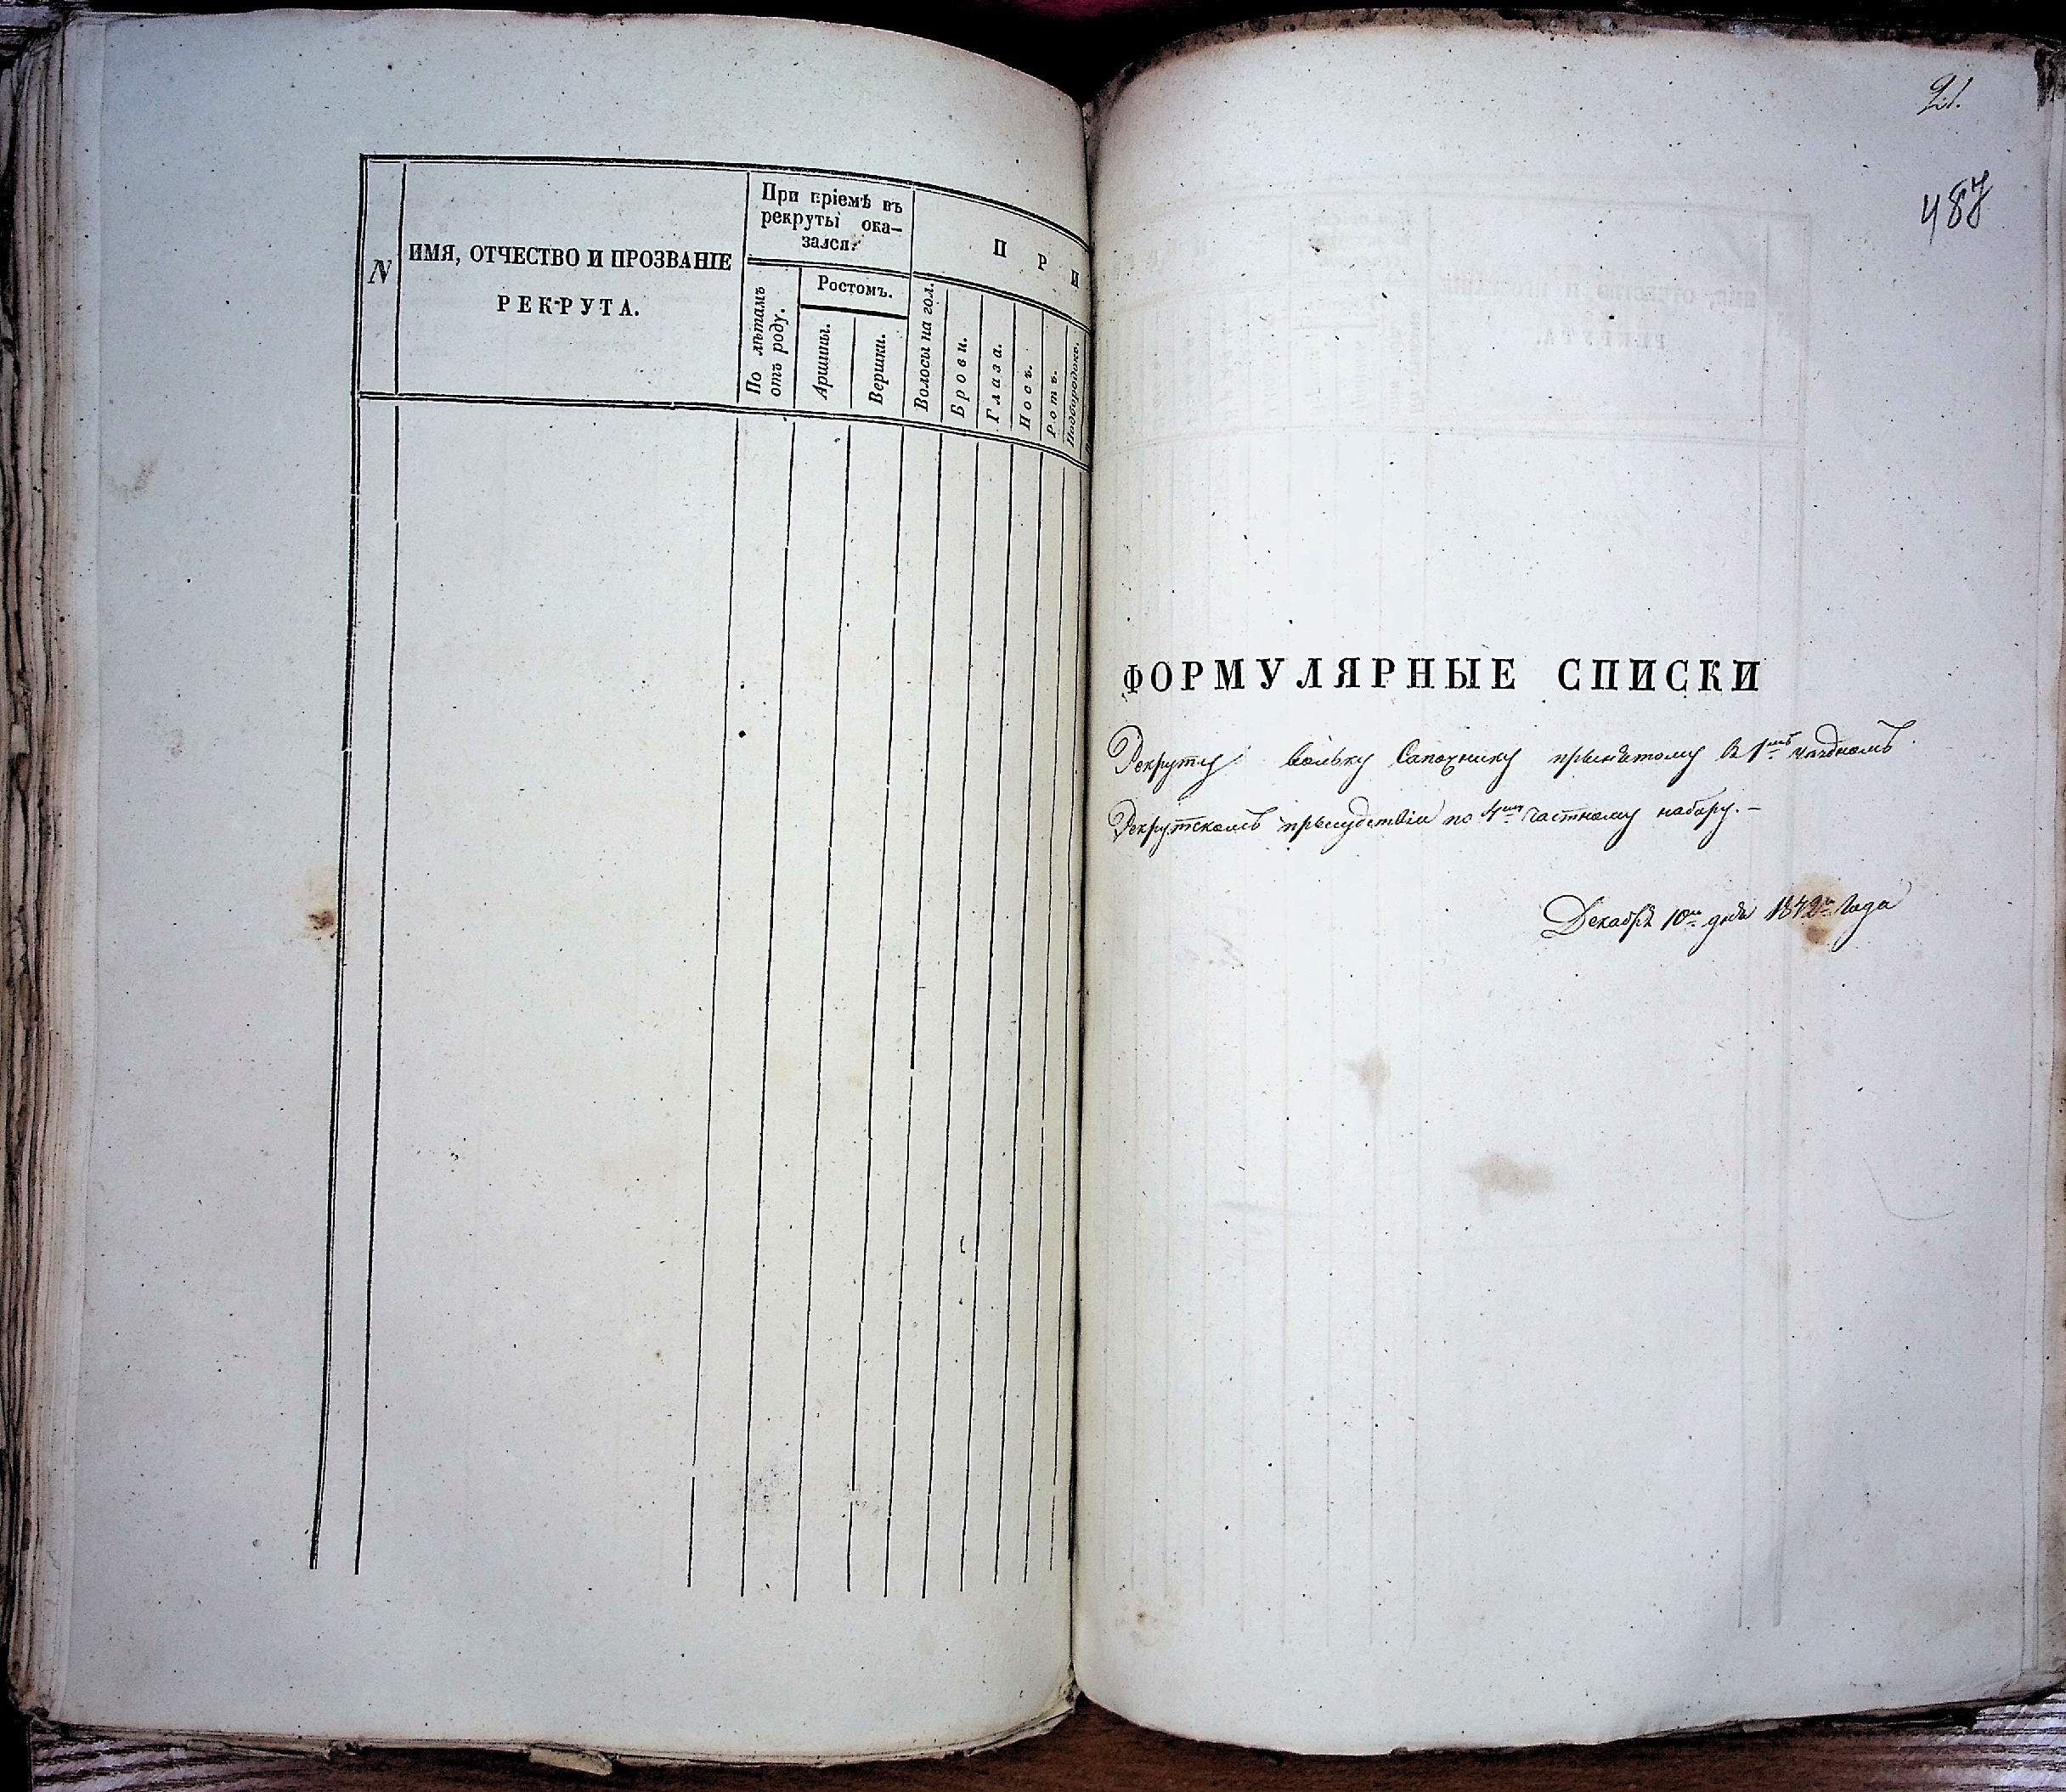 N
ИМЯ, ОТЧЕСТВО И ПРОЗВАНІЕ
РЕКРУТА.
При пріемѣ въ
рекруты ока-
зался:
По лѣтамъ
отъ роду.
Ростомъ.
Аршины.
Вершки.
П Р И
Волосы на гол.
Брови.
Глаза.
Носъ.
Ротъ.
Подбородокъ.
21.
487
ФОРМУЛЯРНЫЕ СПИСКИ
Рекруту Вольку Сапожнику принятому в 1мъ
Рекрутскомъ присудствіи по 4му частному набору.-
Декабря 10го дня 1842го года